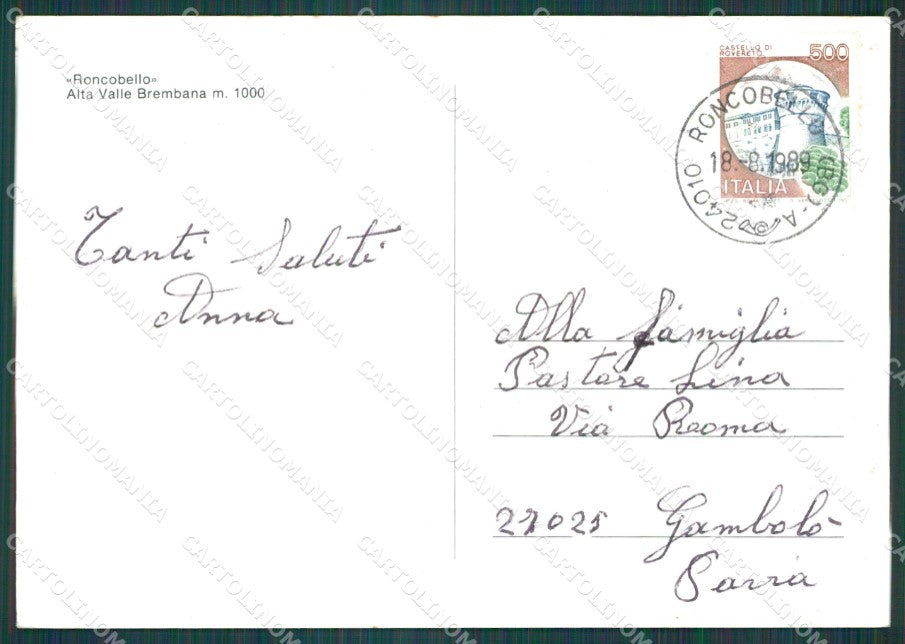 «Roncobello»
Alta Valle Brembana m. 1000
CASTELLO DI
ROVERETO
500
ITALIA
24010 RONCOBELLO (BG) - A
18.-8.1989
Tanti Saluti
Anna
Alla famiglia
Pastore Lina
Via Rooma
27025 Gambolò
Pavia
CARTOLINOMANIA